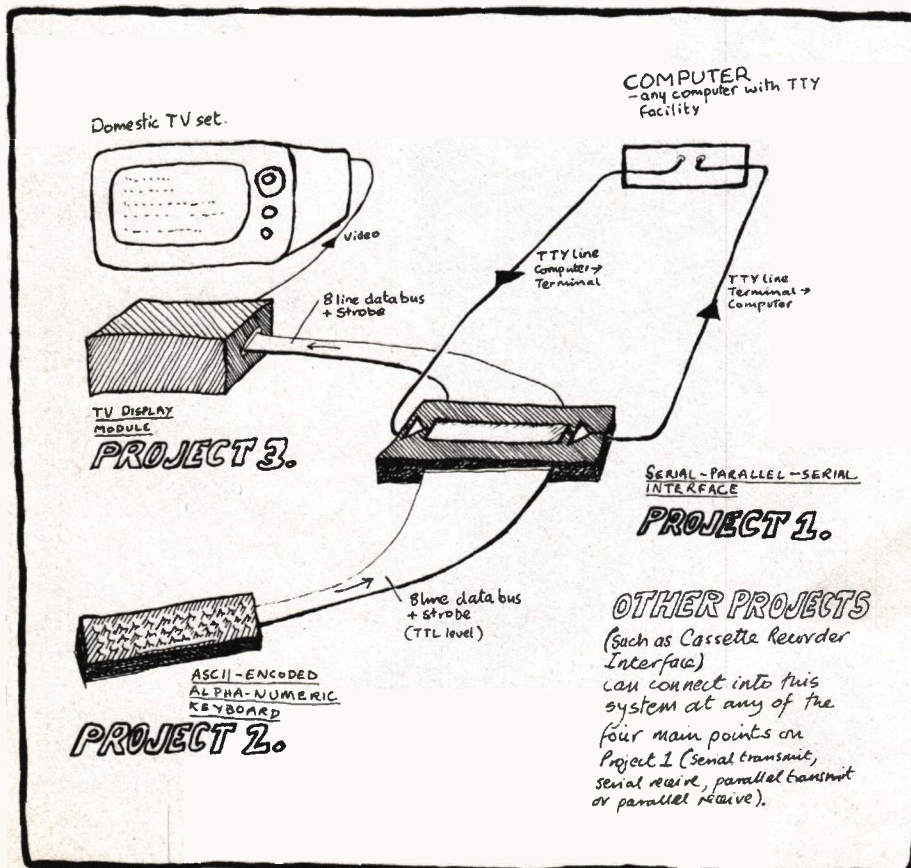 COMPUTER
-any computer with TTY
facility
Domestic TV set.
Video
TTY line
Computer→
Terminal
TTY line
Terminal→
Computer
8 line data bus
+ Strobe
TV DISPLAY
MODULE
PROJECT 3.
SERIAL-PARALLEL-SERIAL
INTERFACE
PROJECT 1.
8 line data bus
+ strobe
(TTL level)
ASCII-ENCODED
ALPHA-NUMERIC
KEYBOARD
PROJECT 2.
OTHER PROJECTS
(Such as Cassette Recorder
Interface)
can connect into this
system at any of the
four main points on
Project 1 (serial transmit,
serial receive, parallel transmit
or parallel receive).